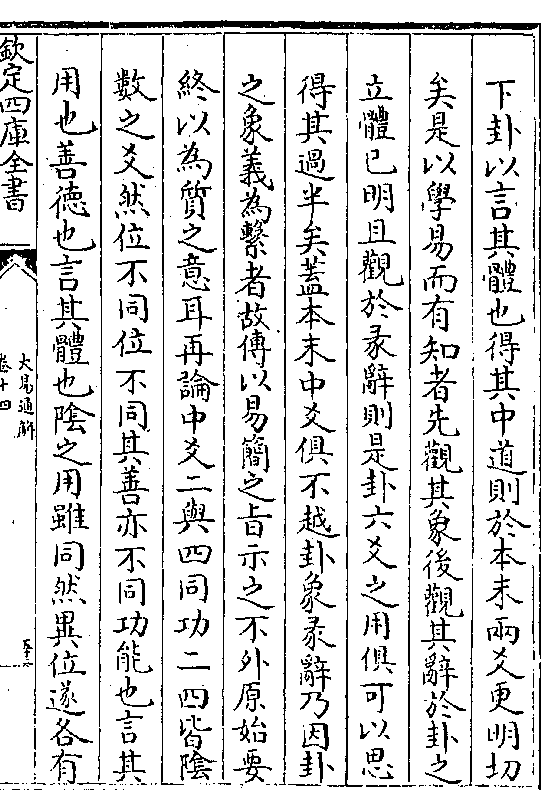 下卦以言其體也得其中道則於本末兩爻更明切
矣是以學易而有知者先觀其象後觀其辭於卦之
立體已明且觀於彖辭則是卦六爻之用俱可以思
得其過半矣蓋本末中爻俱不越卦象彖辭乃因卦
之象義為繫者故傳以易簡之旨示之不外原始要
終以為質之意耳再論中爻二與四同功二四皆陰
數之爻然位不同位不同其善亦不同功能也言其
用也善德也言其體也陰之用雖同然異位遂各有
欽定四庫全書
大易通解
卷十四